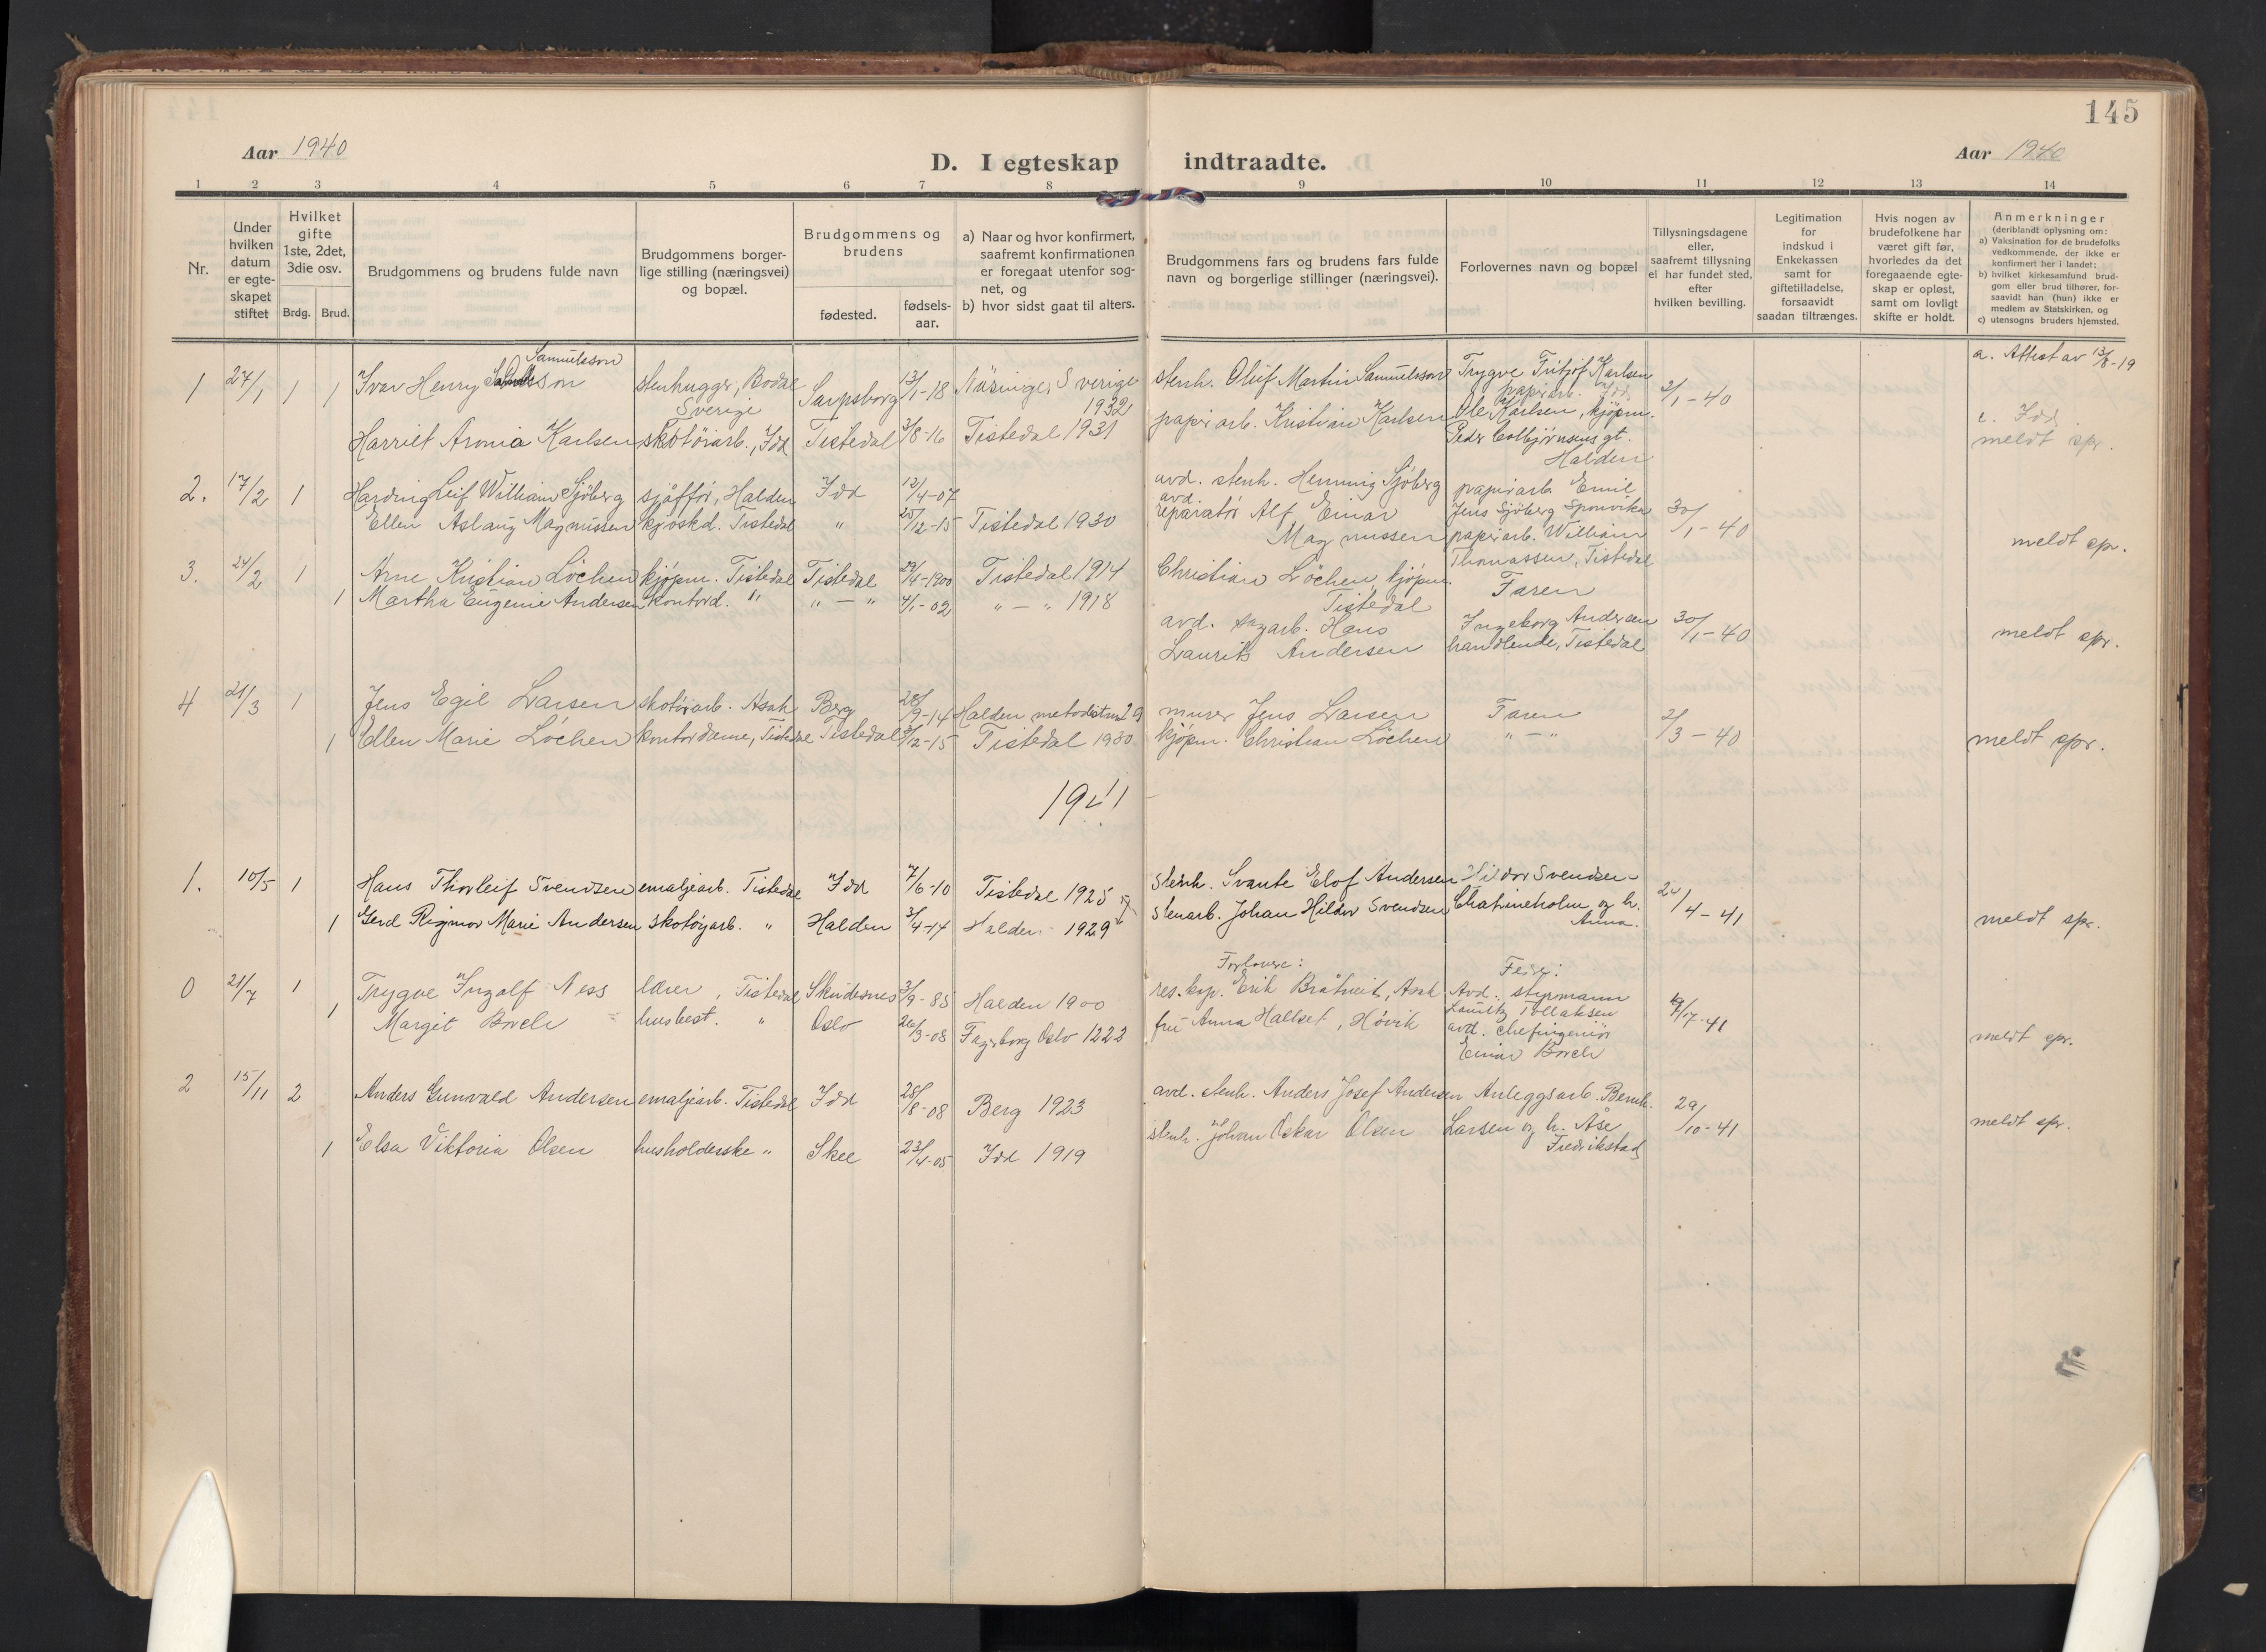 145
Aar 1940
D. I egteskap indtraadte.
Aar 1940
1 2 3 4 5 6 7 8 9 10 11 12 13 14
Nr.
Under hvilken datum er egteskapet stiftet
Hvilket gifte 1ste, 2det, 3die osv.
Brdg. Brud.
Brudgommens og brudens fulde navn
Brudgommens borgerlige stilling (næringsvei) og bopæl.
Brudgommens og brudens
fødested.
fødselsaar.
a) Naar og hvor konfirmert, saafremt konfirmationen er foregaat utenfor sognet, og
b) hvor sidst gaat til alters.
Brudgommens fars og brudens fars fulde navn og borgerlige stillinger (næringsvei).
Forlovernes navn og bopæl
Tillysningsdagene eller, saafremt tillysning ei har fundet sted, efter hvilken bevilling.
Legitimation for indskud i Enkekassen samt for giftetilladelse, forsaavidt saadan tiltrænges.
Hvis nogen av brudefolkene har været gift før, hvorledes da det foregaaende egteskap er opløst, samt om lovligt skifte er holdt.
Anmerkninger (deriblandt oplysning om:
a) Vaksination for de brudefolks vedkommende, der ikke er konfirmert her i landet;
b) hvilket kirkesamfund brudgom eller brud tilhører, forsaavidt han (hun) ikke er medlem av Statskirken, og
c) utensogns bruders hjemsted.
Samuelsson
1 27/1 1 1 Ivar Henry stenhugger, Bodal Sverige Sarpsborg 13/1-18 Näsinge, Sverige 1932 stenh. Oluf Martin Samuelsson Trygve Fritjof Karlsen papirarb. Idd 2/1-40 a. Attest av 13/8-19
Harriet Aronia Karlsen skotøiarb., Idd Tistedal 3/8-16 Tistedal 1931 papirarb. Kristian Karlsen Ole Karlsen, kjøpm. Peder Colbjørnsens gt. Halden Idd meldt spr.
2. 17/2 1 Harding Leif William Sjöberg sjåffør, Halden Idd 12/4-07 avd. stenh. Henning Sjöberg papirarb. Emil Jens Sjöberg Sponvika 30/1-40
Ellen Aslaug Magnussen kjøskd. Tistedal " 25/12-15 Tistedal 1930 avd. reparatør Alf Einar Magnussen papirarb. William Thomassen, Tistedal meldt spr.
3. 24/2 1 Arne Kristian Løchen kjøpm. Tistedal Tistedal 29/4-1900 Tistedal 1914 Christian Løchen, kjøpm. Tistedal Faren
1 Martha Eugenie Andersen kontord. " " — " 4/1-02 " — " 1918 avd. Hans Laurits Andersen Ingeborg Andersen handlende, Tistedal 30/1-40 meldt spr.
4 21/3 1 Jens Egil Larsen skotøiarb. Asak Berg 28/9-14 Halden metodistm 29 murer Jens Larsen Faren 2/3-40
1 Ellen Marie Løchen kontordame, Tistedal Tistedal 12-15 Tistedal 1930 kjøpm. Christian Løchen " — " meldt spr.
1941
1. 10/5 1 Hans Thorleif Svendsen emaljearb. Tistedal Idd 7/6-10 Tistedal 1925 stenh. Svante Elof Andersen Hildor Svendsen
1 Gerd Rigmor Marie Andersen skotøyarb. " Halden 3/4-14 Halden 1929 stenarb. Johan Hildor Svendsen Chatrineholm og h. Anna. /4-41 meldt spr.
Forlovere: Fedre:
0 21/7 1 Trygve Ingolf Ness lærer, Tistedal Skudesnes 3/9-85 Halden 1900 res. kap. Erik Bråtveit, Asak Avd. styrmann Lauritz Tollaksen /7-41
1 Margit Borch husbest. " Oslo 26/3-08 Fagerborg Oslo 1223 fru Anna Hallset, Høvik avd. chefingeniør Einar Borch meldt spr.
2 15/11 2 Anders Gunvald Andersen emaljearb. Tistedal Idd 28/8-08 Berg 1923 avd. stenh. Anders Josef Andersen Anleggsarb. Bernh. 29/10-41 meldt spr.
1 Elsa Viktoria Olsen husholderske " Skee 23/4-05 Idd 1919 stenh. Johan Oskar Olsen Larsen og h. Åse Fredrikstad